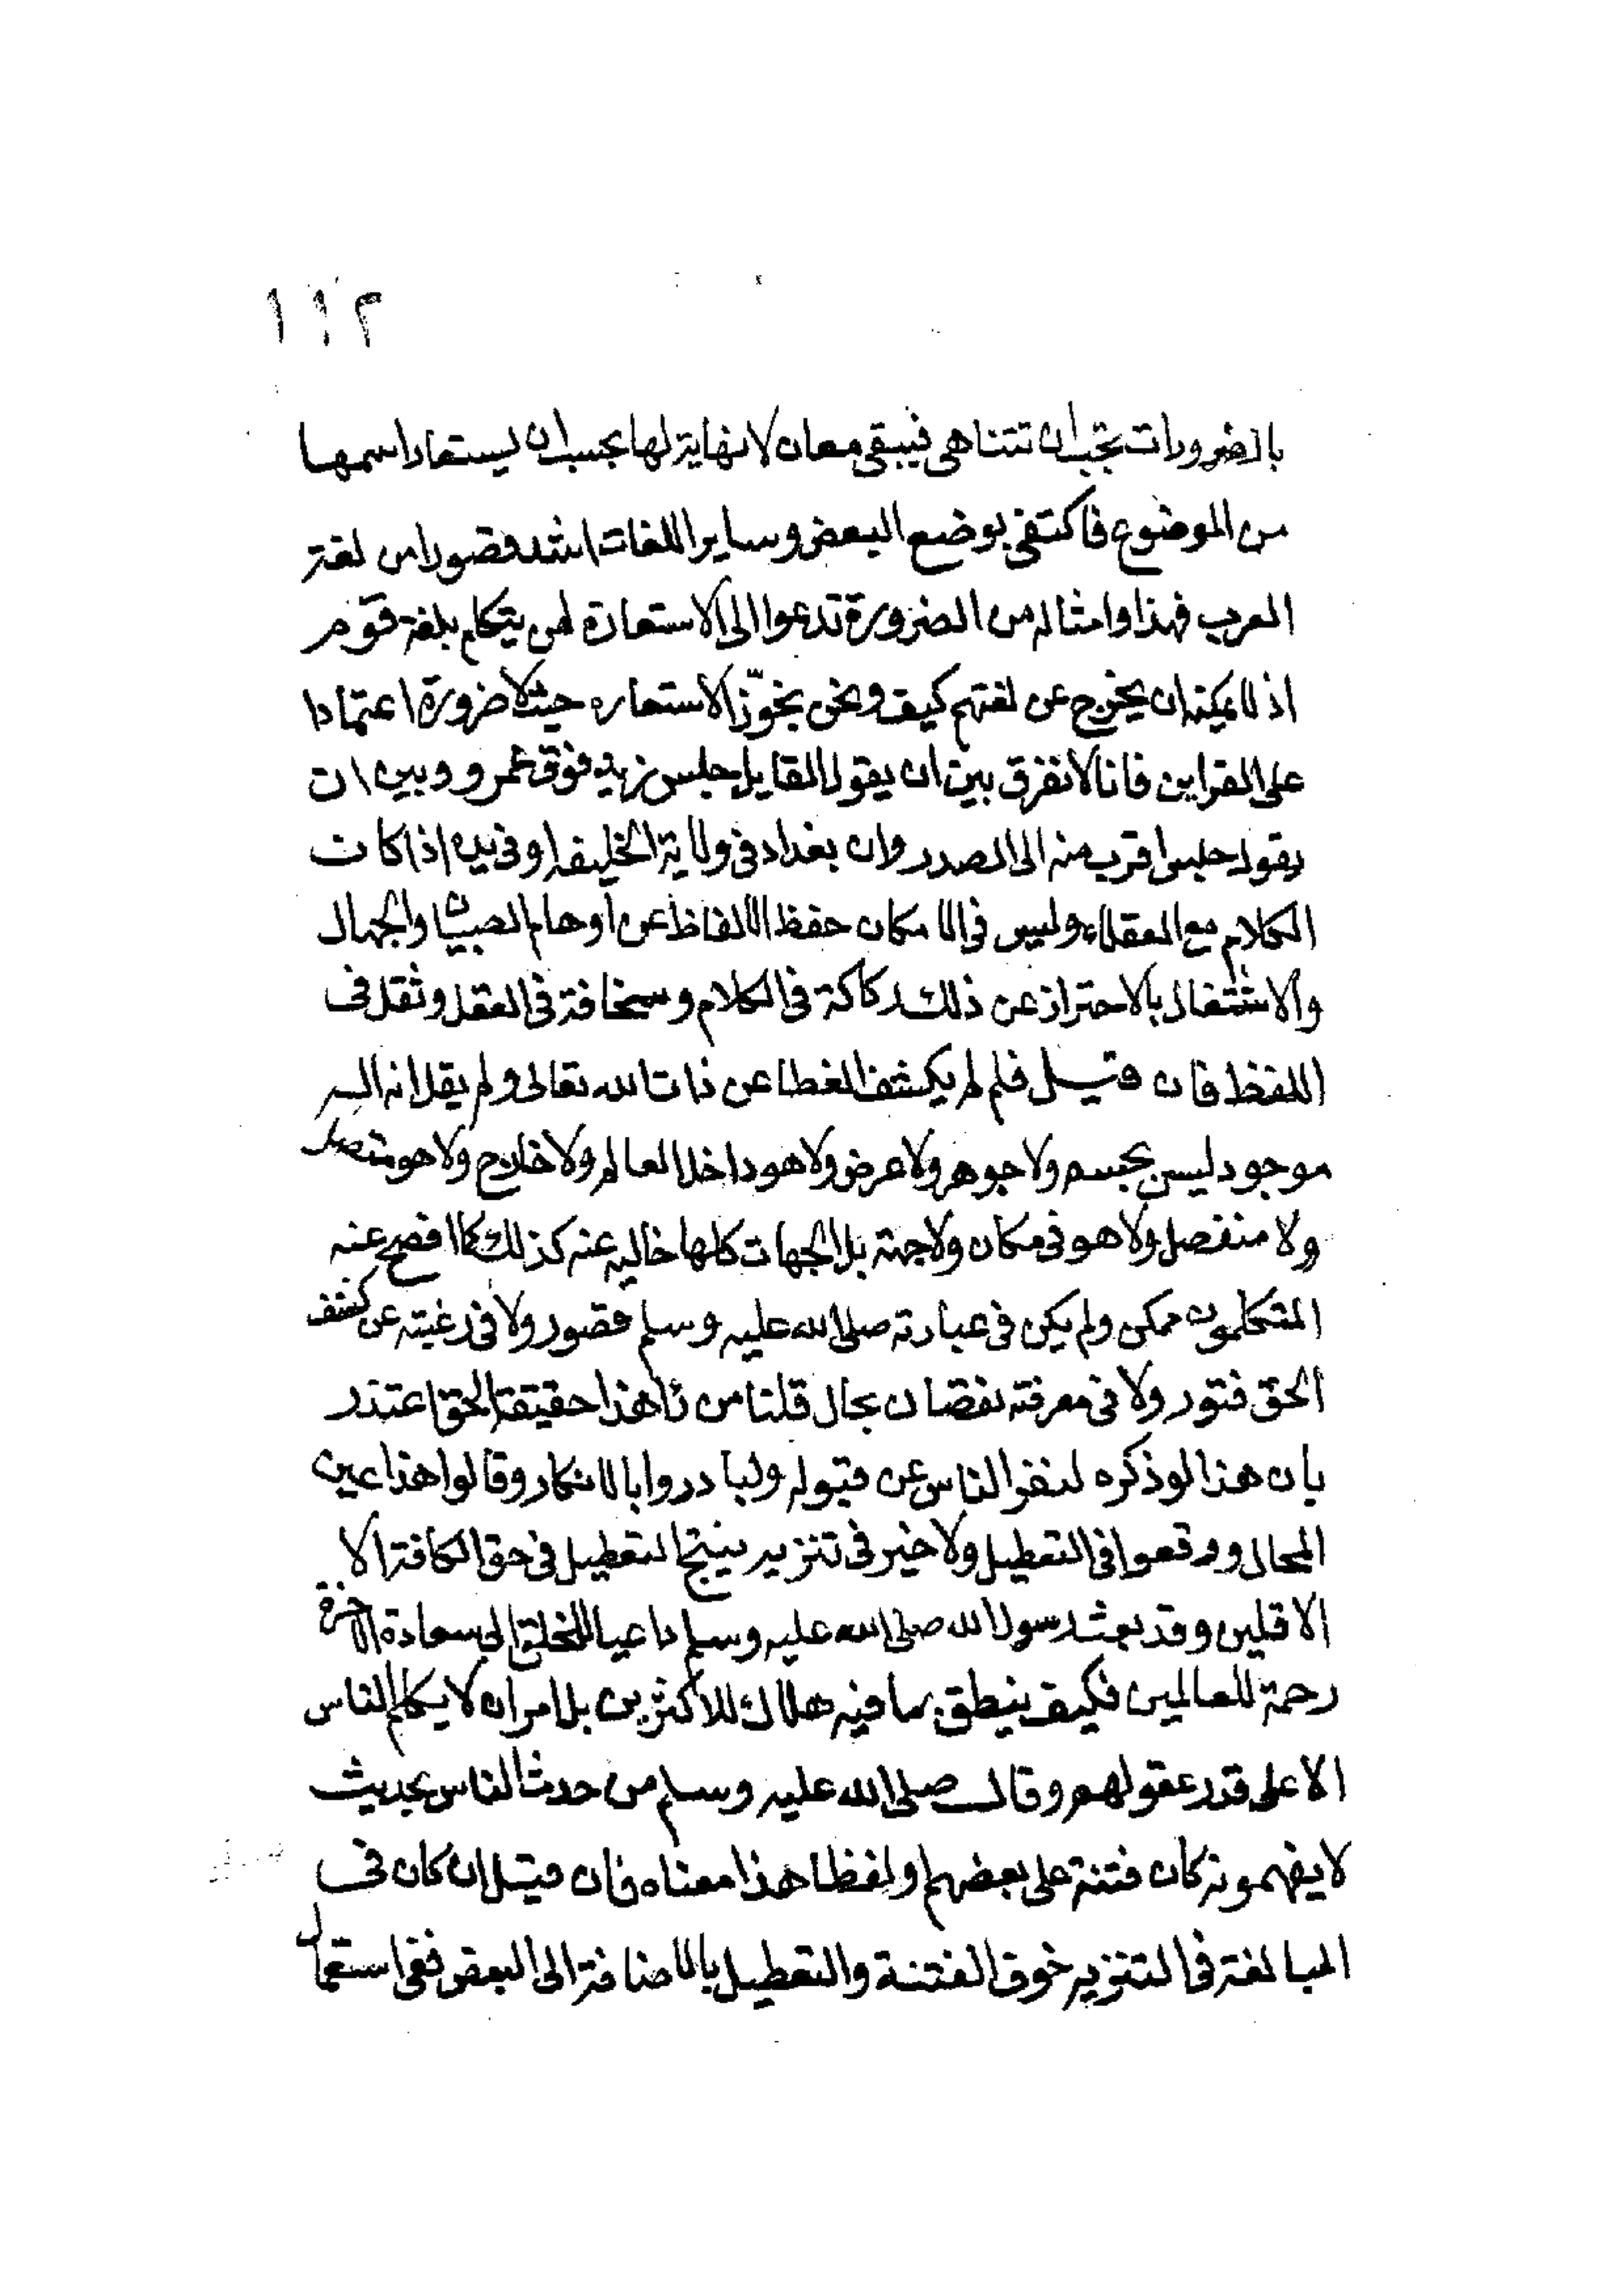 ١١٢
بالضرورات يجب ان تتناهى فيبقى معان لا نهاية لها يجب ان يستعار اسمها
من الموضوع فاكتفى بوضع البعض وساير اللغات اشد قصورا من لغة
العرب فهذا وامثاله من الضرورة تدعوا الى الاستعارة لمن يتكلم بلغة قوم
اذ لا يمكنه ان يخرج عن لغتهم كيف ونحن نجوّز الاستعاره حيث لا ضرورة اعتمادا
على القراين فانا لا نفرق بين ان يقول القايل جلس زيد فوق عمرو وبين ان
يقول جلس اقرب منه الى الصدر وان بغداد في ولاية الخليفه او في يده اذا كان
الكلام مع العقلاء وليس في الامكان حفظ الالفاظ عن اوهام الصبيان والجهال
والاشتغال بالاحتراز عن ذلك ركاكة في الكلام وسخافة في العقل وثقل في
اللفظ فان قيل فلم لم يكشف الغطا عن ذات الله تعالى ولم يقل انه
موجود ليس بجسم ولا جوهر ولا عرض ولا هو داخل العالم ولا خارج ولا هو متصل
ولا منفصل ولا هو في مكان ولا جهة بل الجهات كلها خاليه عنه كذلك كما افصح عنه
المتكلمون ممكن ولم يكن في عبارته صلى الله عليه وسلم قصور ولا في رغبته عن كشف
الحق فتور ولا في معرفته نقصان بحال قلنا من هذا حقيقة الحق اعتذر
بان هذا لو ذكره لنفر الناس عن قبوله ولبادروا بالانكار وقالوا هذا عين
المحال ووقعوا في التعطيل ولا خير في تنزيه ينتج التعطيل في حق الكافة الا
الاقلين وقد بعث رسول الله صلى الله عليه وسلم داعيا للخلق الى سعادة الاخرة
رحمة للعالمين فكيف ينطق بما فيه هلاك للاكثرين بل امر ان لا يكلم الناس
الا على قدر عقولهم وقال صلى الله عليه وسلم من حدث الناس بحديث
لا يفهمونه كان فتنة على بعضهم او لفظا هذا معناه فان قيل ان كان في
المبالغة في التنزيه خوف الفتنة والتعطيل بالاضافة الى البعض ففي استعمال